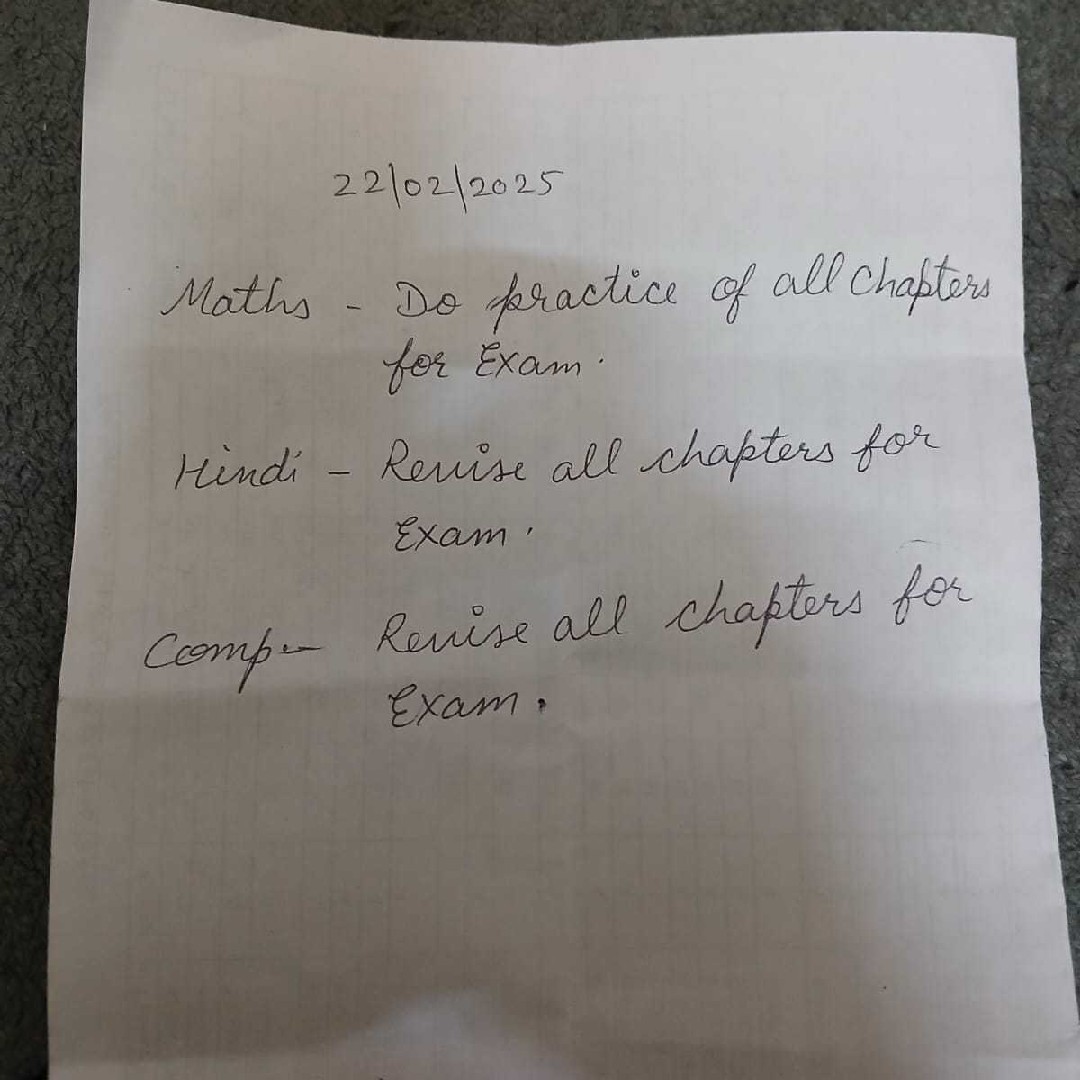 22/02/2025
Maths - Do practice of all Chapters
for Exam.
Hindi - Revise all chapters for
Exam.
Comp.- Revise all chapters for
Exam.